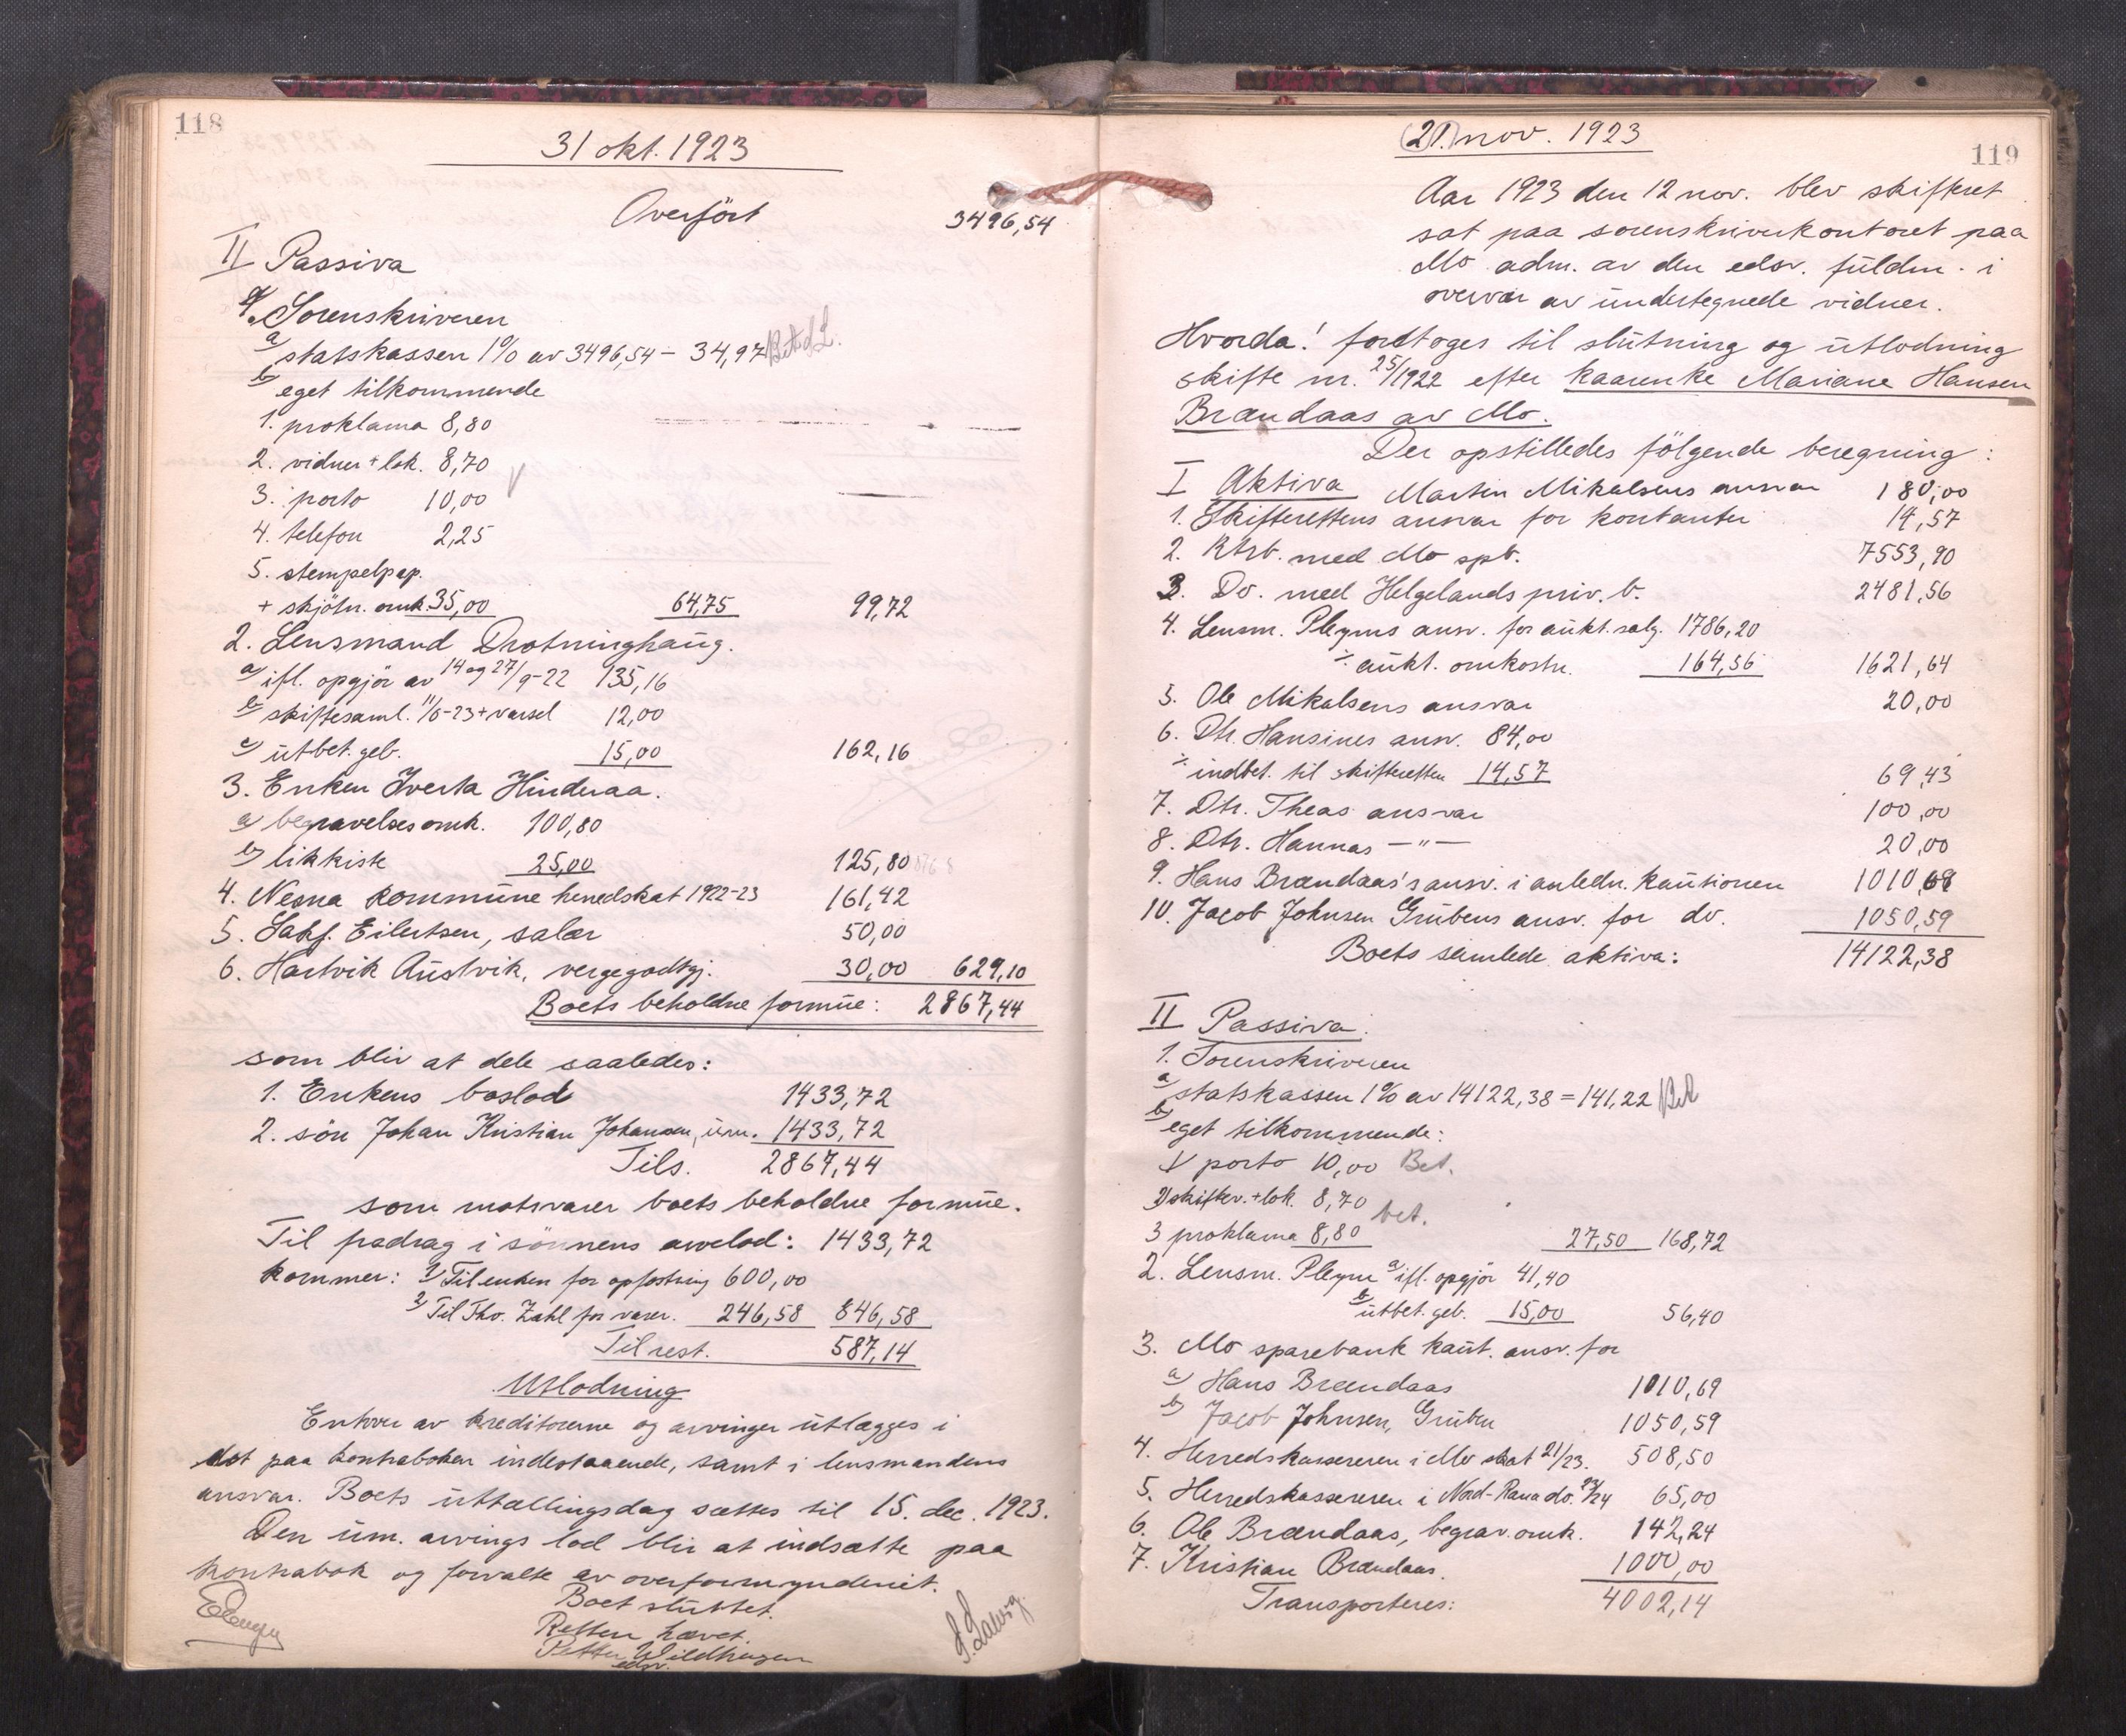 118
31 okt. 1923
Overført 3496,54
II Passiva
1. Sorenskriveren
a) statskassen 1% av 3496,54 – 34,97 Bet
b) eget tilkommende
1. proklama 8,80
2. vidner + lok. 8,70
3. porto 10,00
4. telefon 2,25
5. stempelpap.
+ skjötn. omk. 35,00 64,75 99,72
2. Lensmand Drotninghaug.
a) ifl. opgjör av 14 og 27/9-22 135,16
b) skiftesaml. 11/6-23 + varsel 12,00
c) utbet. geb. 15,00 162,16
3. Enken Iverta Hinderaa.
a) begravelsesomk. 100,80
b) likkiste 25,00 125,80
4. Nesna kommune herredskat 1922-23 161,42
5. Sakf. Eilertsen, salær 50,00
6. Hartvik Austvik, vergegodtgj. 30,00 629,10
Boets beholdne formue: 2867,44
som bliv at dele saaledes:
1. Enkens boslod 1433,72
2. sön Johan Kristian Johansen, um. 1433,72
Tils. 2867,44
som motsvarer boets beholdne formue.
Til fradrag i sönnens arvelod: 1433,72
kommer: 1) Til enken for opfostring 600,00
2) Til Thv. Zahl for varer. 246,58 846,58
Til rest. 587,14
Utlodning
Enhver av kreditorerne og arvinger utlægges i
det paa kontraboken indestaaende, samt i lensmandens
ansvar. Boets uttællingsdag sættes til 15. dec. 1923.
Den um. arvings lod blir at indsætte paa
kontrabok og forvalte av overformynderiet.
Boet sluttet.
Retten hævet.
Petter Wildhagen
edsv.
119
(21.) nov. 1923
Aar 1923 den 12 nov. blev skifteret
sat paa sorenskriverkontoret paa
Mo adm. av den edsv. fuldm. i
overvær av undertegnede vidner.
Hvorda! foretoges til slutning og utlodning
skifte nr. 25/1922 efter Kaarenke Mariane Hansen
Brændaas av Mo.
Der opstilledes fölgende beregning:
I Aktiva Martin Mikalsens ansvar 180,00
1. Skifterettens ansvar for kontanter 14,57
2. Ktrb. med Mo spb. 7553,90
3. Do. med Helgelands priv. b. 2481,56
4. Lensm. Pleyms ansv. for aukt. salg. 1786,20
÷ aukt. omkostn. 164,56 1621,64
5. Ole Mikalsens ansvar 20,00
6. Dtr. Hansines ansv. 84,00
÷ indbet. til skifteretten 14,57 69,43
7. Dtr. Theas ansvar 100,00
8. Dtr. Hannas – " – 20,00
9. Hans Brændaas's ansv. i anledn. kautionen 1010,69
10. Jacob Johnsen Grubens ansv. for do. 1050,59
Boets samlede aktiva: 14122,38
II Passiva.
1. Sorenskriveren
a) statskassen 1% av 14122,38 = 141,22 Bet
b) eget tilkommende:
1) porto 10,00 Bet.
2) skiftev. + lok. 8,70
bet.
3 proklama 8,80 27,50 168,72
2. Lensm. Pleym a) ifl. opgjör 41,40
b) utbet. geb. 15,00 56,40
3. Mo sparebank kaut. ansv. for
a) Hans Brændaas 1010,69
b) Jacob Johnsen, Gruben 1050,59
4. Herredskassereren i Mo skat 21/23. 508,50
5. Herredskassereren i Nord-Rana do. 23/24 65,00
6. Ole Brændaas, begrav. omk. 142,24
7. Kristian Brændaas. 1000,00
Transporteres: 4002,14